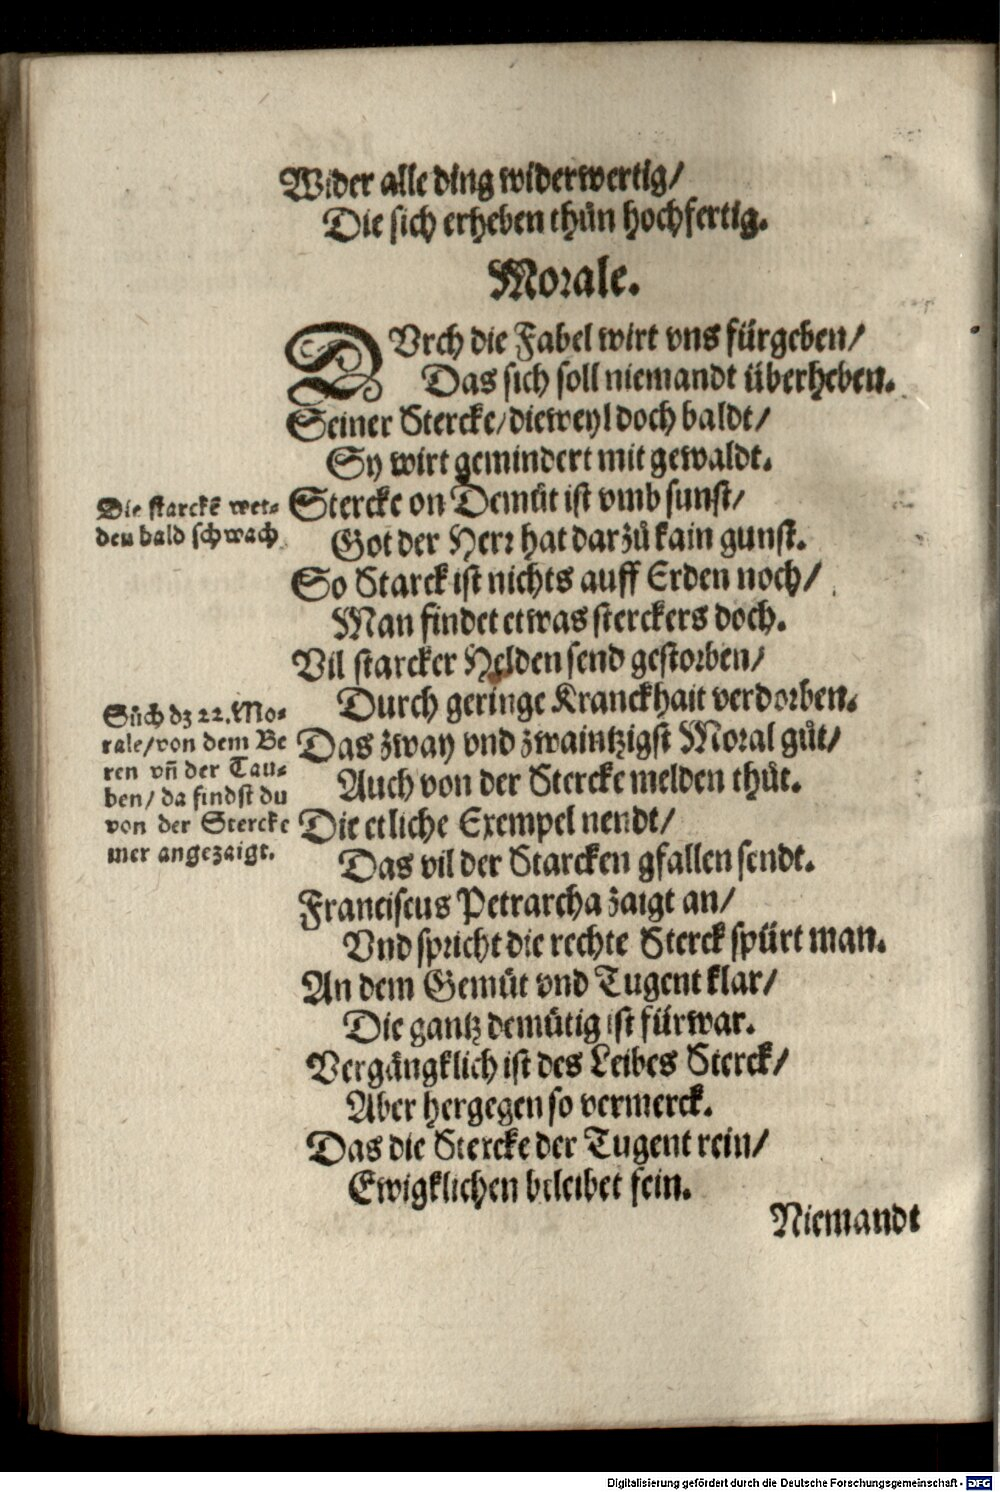 Wider alle ding widerwertig/
Die sich erheben thůn hochfertig.
Morale.
DVrch die Fabel wirt vns fürgeben/
Das sich soll niemandt überheben.
Seiner Stercke/dieweyl doch baldt/
Sy wirt gemindert mit gewaldt.
Die starckē wer-
den bald schwach
Stercke on Demůt ist vmb sunst/
Got der Herr hat darzů kain gunst.
So Starck ist nichts auff Erden noch/
Man findet etwas sterckers doch.
Vil starcker Helden send gestorben/
Durch geringe Kranckhait verdorben.
Sůch dz 22. Mo-
rale/von dem Be
ren vñ der Tau-
ben/ da findst du
von der Stercke
mer angezaigt.
Das zway vnd zwaintzigst Moral gůt/
Auch von der Stercke melden thůt.
Die etliche Exempel nendt/
Das vil der Starcken gfallen sendt.
Franciscus Petrarcha zaigt an/
Vnd spricht die rechte Sterck spürt man.
An dem Gemůt vnd Tugent klar/
Die gantz demůtig ist fürwar.
Vergängklich ist des Leibes Sterck/
Aber hergegen so vermerck.
Das die Stercke der Tugent rein/
Ewigklichen beleibet fein.
Niemandt
Digitalisierung gefördert durch die Deutsche Forschungsgemeinschaft - DFG